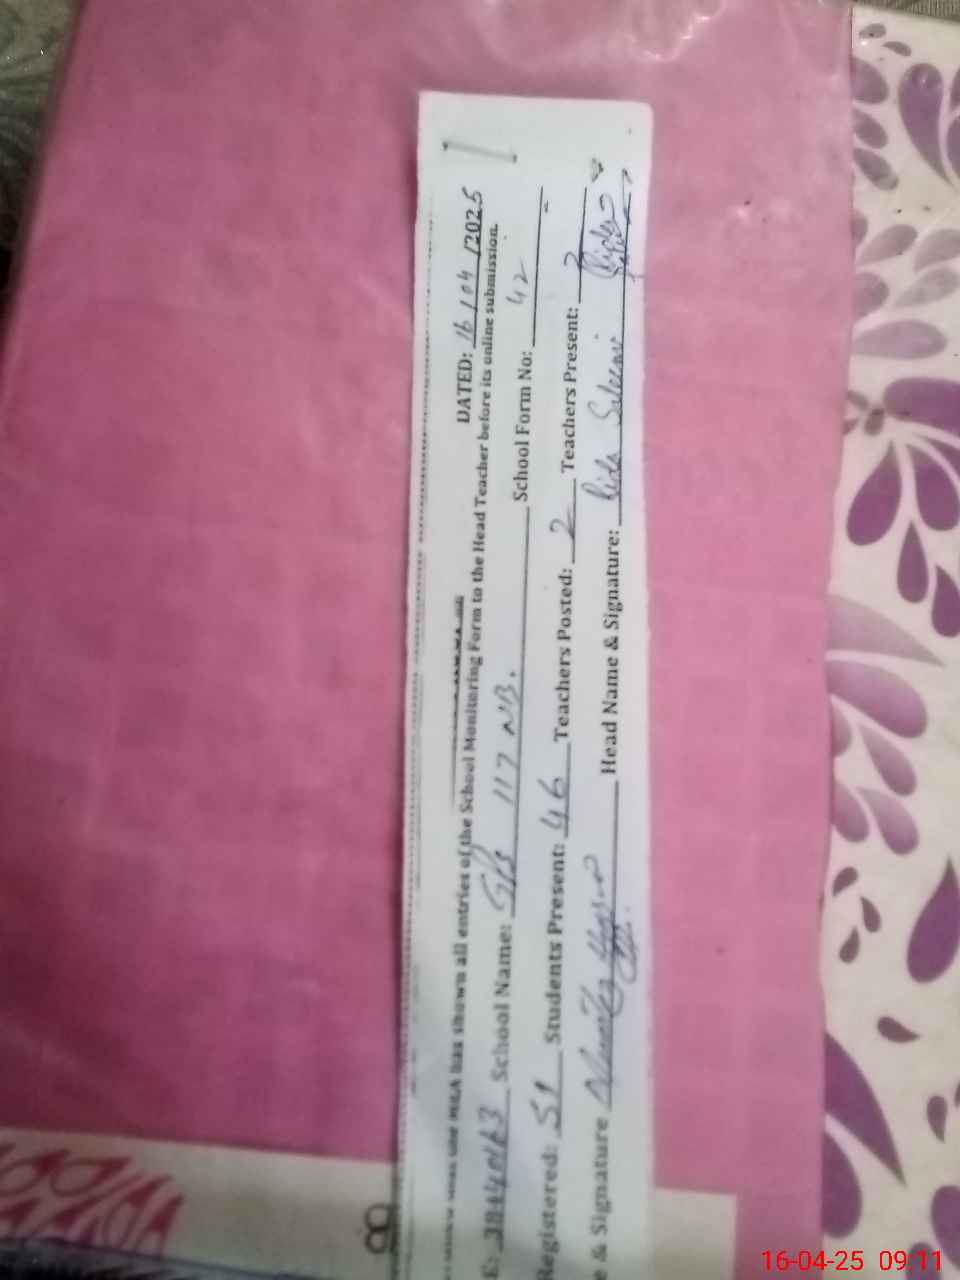 DATED: 16/04/2025
has shown all entries of the School Monitoring Form to the Head Teacher before its online submission.
E: School Name: G/S 117 NB. School Form No: 42
Registered: 51 Students Present: 46 Teachers Posted: 2 Teachers Present: 2
e & Signature Head Name & Signature: Rida
8
16-04-25 09:11